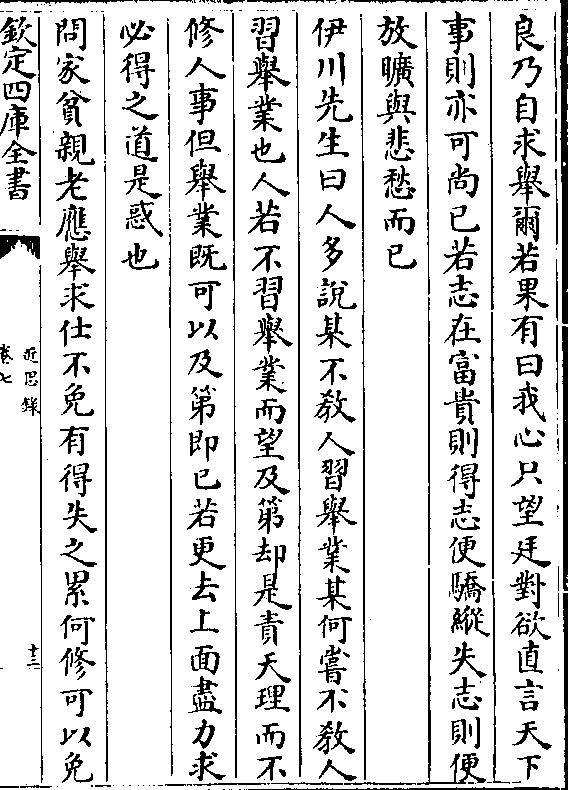 良乃自求舉爾若果有曰我心只望廷對欲直言天下
事則亦可尚已若志在富貴則得志便驕縱失志則便
放曠與悲愁而已
伊川先生曰人多說某不教人習舉業某何嘗不教人
習舉業也人若不習舉業而望及第却是責天理而不
修人事但舉業既可以及第即已若更去上面盡力求
必得之道是惑也
問家貧親老應舉求仕不免有得失之累何修可以免
欽定四庫全書
近思錄
卷七
十三